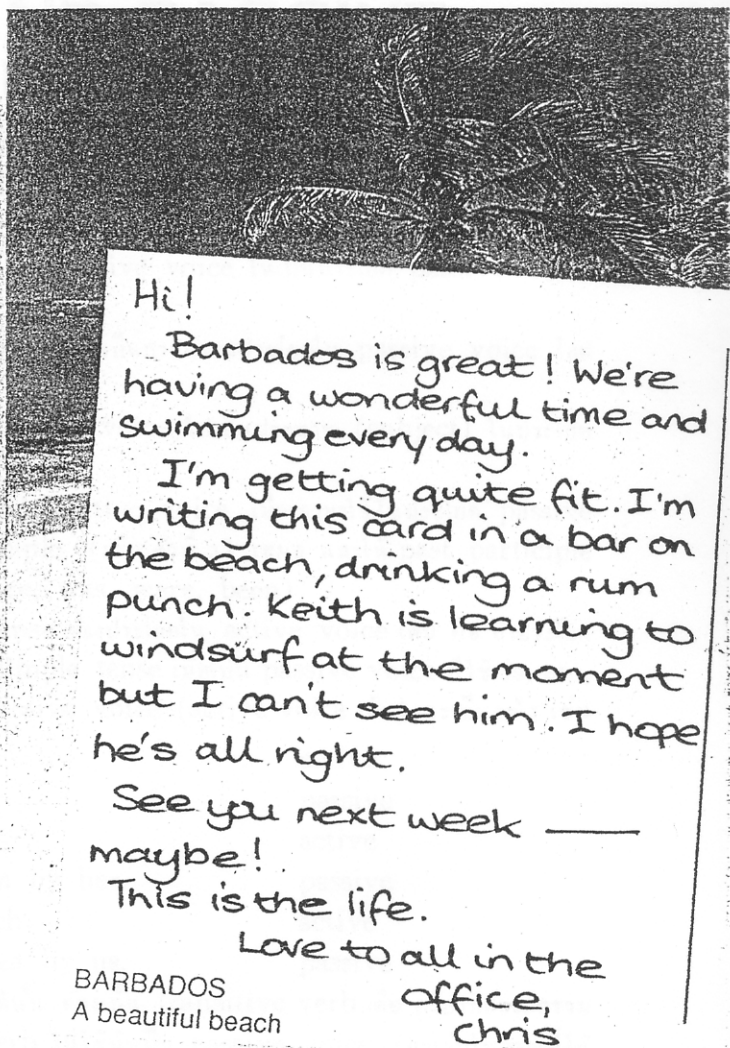 Hi!
Barbados is great! We're
having a wonderful time and
swimming every day.
I'm getting quite fit. I'm
writing this card in a bar on
the beach, drinking a rum
punch. Keith is learning to
windsurf at the moment
but I can't see him. I hope
he's all right.
See you next week ——
maybe!
This is the life.
Love to all in the
office,
Chris
BARBADOS
A beautiful beach